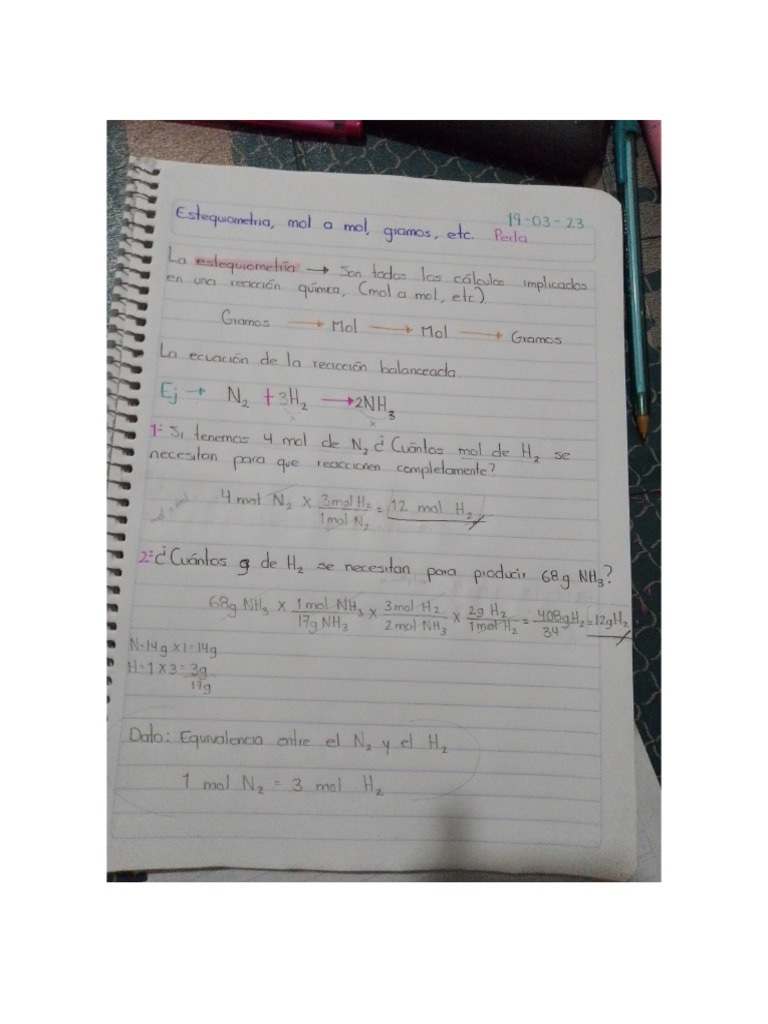 19-03-23
Estequiometria, mol a mol, gramos, etc. Perla
La estequiometría → Son todos los cálculos implicados
en una reacción química, (mol a mol, etc).
Gramos → Mol → Mol → Gramos
La ecuación de la reacción balanceada.
Ej → N₂ + 3H₂ → 2NH₃
1- Si tenemos 4 mol de N₂ ¿Cuántos mol de H₂ se
necesitan para que reaccionen completamente?
mol a mol
4 mol N₂ x 3mol H₂ / 1mol N₂ = 12 mol H₂
2- ¿Cuántos g de H₂ se necesitan para producir 68g NH₃?
68g NH₃ x 1mol NH₃ / 17g NH₃ x 3mol H₂ / 2mol NH₃ x 2g H₂ / 1mol H₂ = 408gH₂ / 34 = 12gH₂
N=14g x 1=14g
H=1 x 3= 3g
17g
Dato: Equivalencia entre el N₂ y el H₂
1 mol N₂ = 3 mol H₂